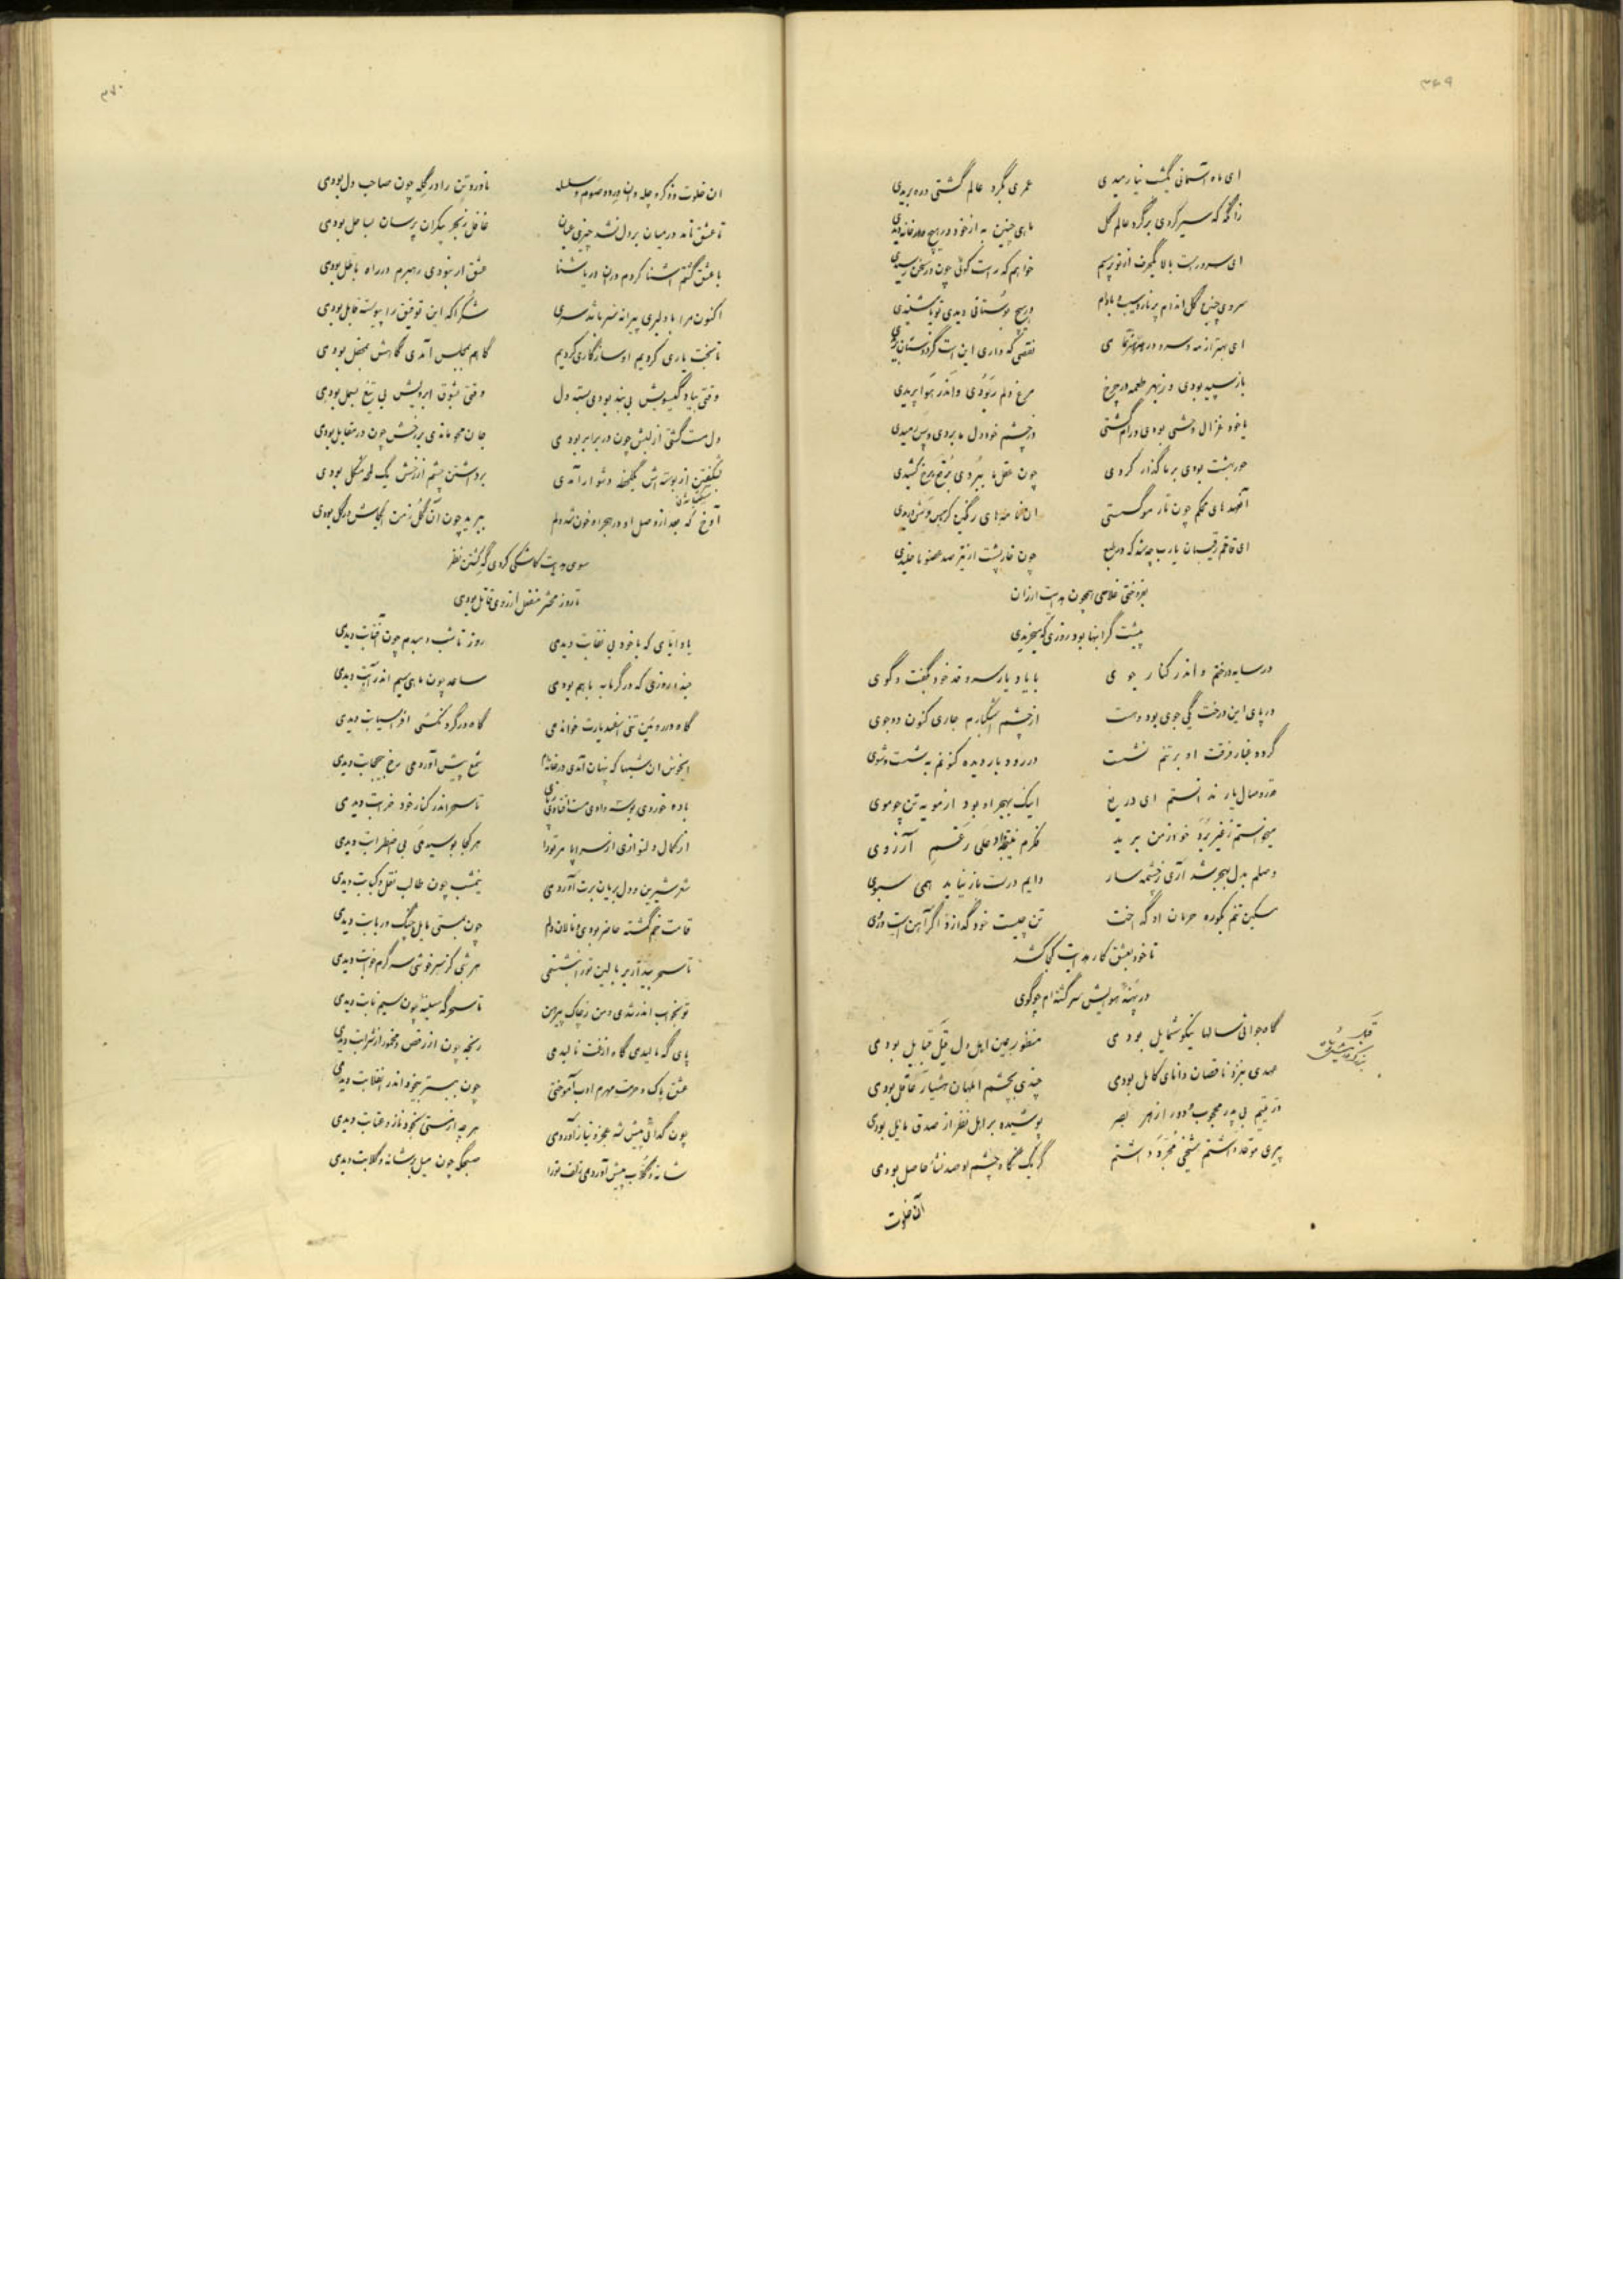 ۳۶۹
ای ماه آسمانی یکشب نیارمیدی عمری بگرد عالم گشتی و ره بریدی
زانگه که سیر کردی بر گرد عالم گل ماهی چنین به از خود در هیچ خانه دیدی
ای سرو راست بالا یکحرف از تو پرسم خواهم که راست گوئی چون در سخن رسیدی
سروی چنین گل اندام پر نار و سیب و بادام در هیچ بوستانی دیدی تو یا شنیدی
ای بهتر از مه و سرو در نقصی که داری این است
باز سپید بودی وز بهر طعمه در چرخ مرغ دلم ربودی واندر هوا پریدی
یا خود غزال وحشی بودی و رام گشتی در چشم خود دل ما بردی و پس رمیدی
حور بهشت بودی بر ما گذار کردی چون عقل ما ببردی برقع برخ کشیدی
آنعهدهای محکم چون تار مو گسستی ان های رنگین
ای قاقم رقیبان یارب چه شد که در طبع چون خارپشت از تیر صد عضو ما خلیدی
بفروختی غلامی همچون هدایت ارزان
پیشت گرانبها بود روزی که میخریدی
در سایه درختم و اندر کنار جوی با یاد یار سرو قد خود بگفت و گوی
در پای این درخت یکی جوی بود و هست از چشم اشکبارم جاری کنون دو جوی
گرد و غبار فرقت او بر تنم نشست در رود بار دیده کنونم به شست و شوی
قدر وصال یار ندانستم ای دریغ اینک بهجر او بود از مویه تن چو موی
میخواستم ز غیر برد خو از من برید علی رغم آرزوی
وصلم بدل بهجر شد آری ز چشمه سار دایم درست باز نیاید همی سبوی
مسکین تنم بکوره حرمان او گداخت تن چیست خود گدازد اگر آهنست و روی
تا خود بعشق کار هدایت کجا کشد
در پهنه هوایش سر گشته ام چو گوی
گاه جوانی سالها نیکو شمایل بودمی منظور عین اهل دل قبل قبایل بودمی
عهدی بنزد ناقصان دانای کامل بودمی چندی بچشم ابلهان هشیار عاقل بودمی
در یتیم بی پدر محجوب و دور از هر بصر پوشیده بر اهل نظر از صدق مایل بودمی
پیری موقد داشتم شیخی مجرد داشتم گر یک نگاه چشم او صد نشأ حاصل بودمی
آن خلوت
۳۷۰
ان خلوت و ذکر و چله وان ورد و صوم و سلسله ماندر و تن را در گله چون صاحب دل بودمی
تا عشق نامد در میان بر دل نشد چیزی عیان غافل ز بحر بیکران پرسان ساحل بودمی
با عشق گشتم آشنا کردم دران دریا شنا عشق ار نبودی رهبرم در راه باطل بودمی
اکنون مرا با دلبری پیرانه سر باشد سری شکرا که این توفیق را پیوسته قابل بودمی
تا بخت یاری کردیم او سازگاری کردیم گاهم بمجلس آمدی گاهش بمحفل بودمی
وقتی بیاد گیسویش بی بند بودی بسته دل وقتی بشوق ابرویش بی تیغ بسمل بودمی
دل مست گشتی از لبش چون در برابر بودمی جان محو ماندی بر رخش چون در مقابل بودمی
از بوسه اش یکلحظه دشوار آمدی برداشتن چشم از رخش یک لمحه مشکل بودمی
آوخ که بعد از وصل او در هجر او خون شد دلم ببرید چون آن گل ز من
سوی هدایت کاشکی کردی گه کشتن نظر
تا روز محشر منفعل از روی قاتل بودمی
یاد ایامی که با خود بی نقابت دیدمی روز تا شب دمبدم چون آفتابت دیدمی
حبذا روزی که در گرمابه با هم بودمی ساعد چون ماهی سیم اندر آبت دیدمی
گاه در روئین تنی اسفندیارت خواندمی گاه در گرد کشی افراسیابت دیدمی
ایخوش ان شبها که پنهان آمدی در خانه ام شمع پیش آوردمی رخ بیحجابت دیدمی
باده خوردی بوسه دادی مست افتادی تا سحر اندر کنار خود خرابت دیدمی
از کمال دلنوازی از سراپا مر تو را هر کجا بوسیدمی بی اضطرابت دیدمی
شعر شیرین و دل بریان برت آوردمی نیمشب چون طالب نقل و کبابت دیدمی
قامت خم گشته حاضر بودمی و نالان دلم چون بمستی مایل چنگ و ربابت دیدمی
تا سحر بیدار بر بالین تو را بنشستمی هر شبی کز سرخوشی سر گرم خوابت دیدمی
تو بخواب اندر شدی و من ز چاک پیرهن تا سحرگه سینه چون سیم نابت دیدمی
پای گه مالیدمی گاه ازفت نالیدمی رنجه چون از رقص و مخمور از شرابت دیدمی
عشق پاک و حرمت مهرم ادب آموختی چون ببستر بیخود اندر انقلابت دیدمی
چون گدائی پیش شه عجز و نیاز آوردمی هر چه از مستی بخود ناز و عتابت دیدمی
شانه و گلاب پیش آوردمی زلف تو را صبحگه چون میل بر شانه و گلابت دیدمی